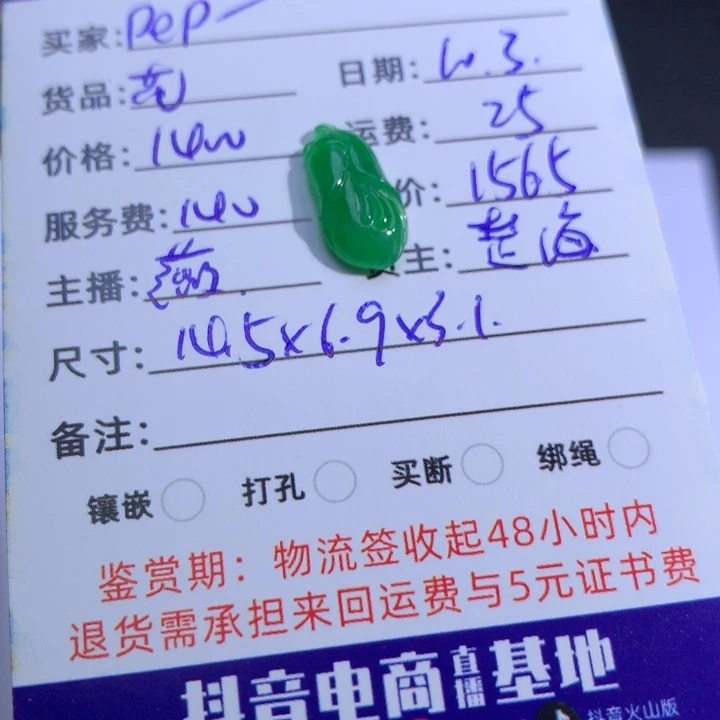 买家: pep
货品: 日期: 10.3.
价格: 1400 运费: 25
服务费: 140 价: 1565
主播: 主:
尺寸: 14.5×6.9×3.1.
备注:
镶嵌 打孔 买断 绑绳
鉴赏期：物流签收起48小时内
退货需承担来回运费与5元证书费
抖音电商直播基地
抖音火山版